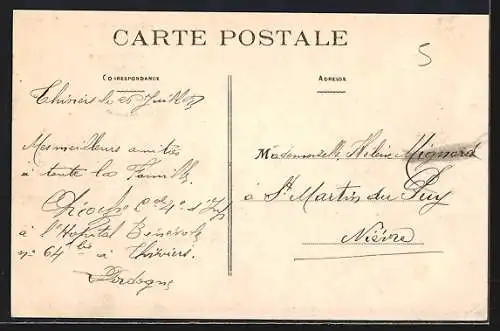 CARTE POSTALE
5
CORRESPONDANCE
ADRESSE
Thiviers le 26 Juillet
Mes meilleurs amitiés
à toute la Famille
à l'Hopital Bénévole
n° 64 bis à Thiviers.
Dordogne
Mademoiselle Hélène Mignard
à St Martin du Puy
Nièvre